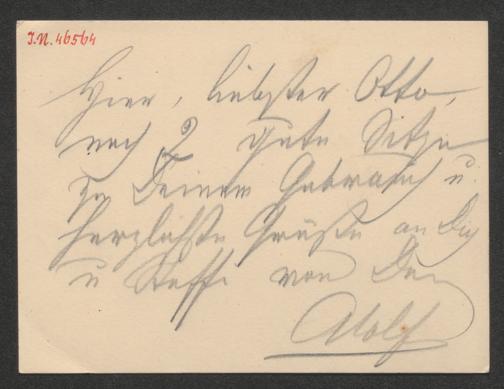 I.N. 46564
Hier, liebster Otto,
noch 2 gute Sitze
zu Deinem Gebrauch u.
herzlichste Grüße an Dich
u Steffi von Dein
Adolf